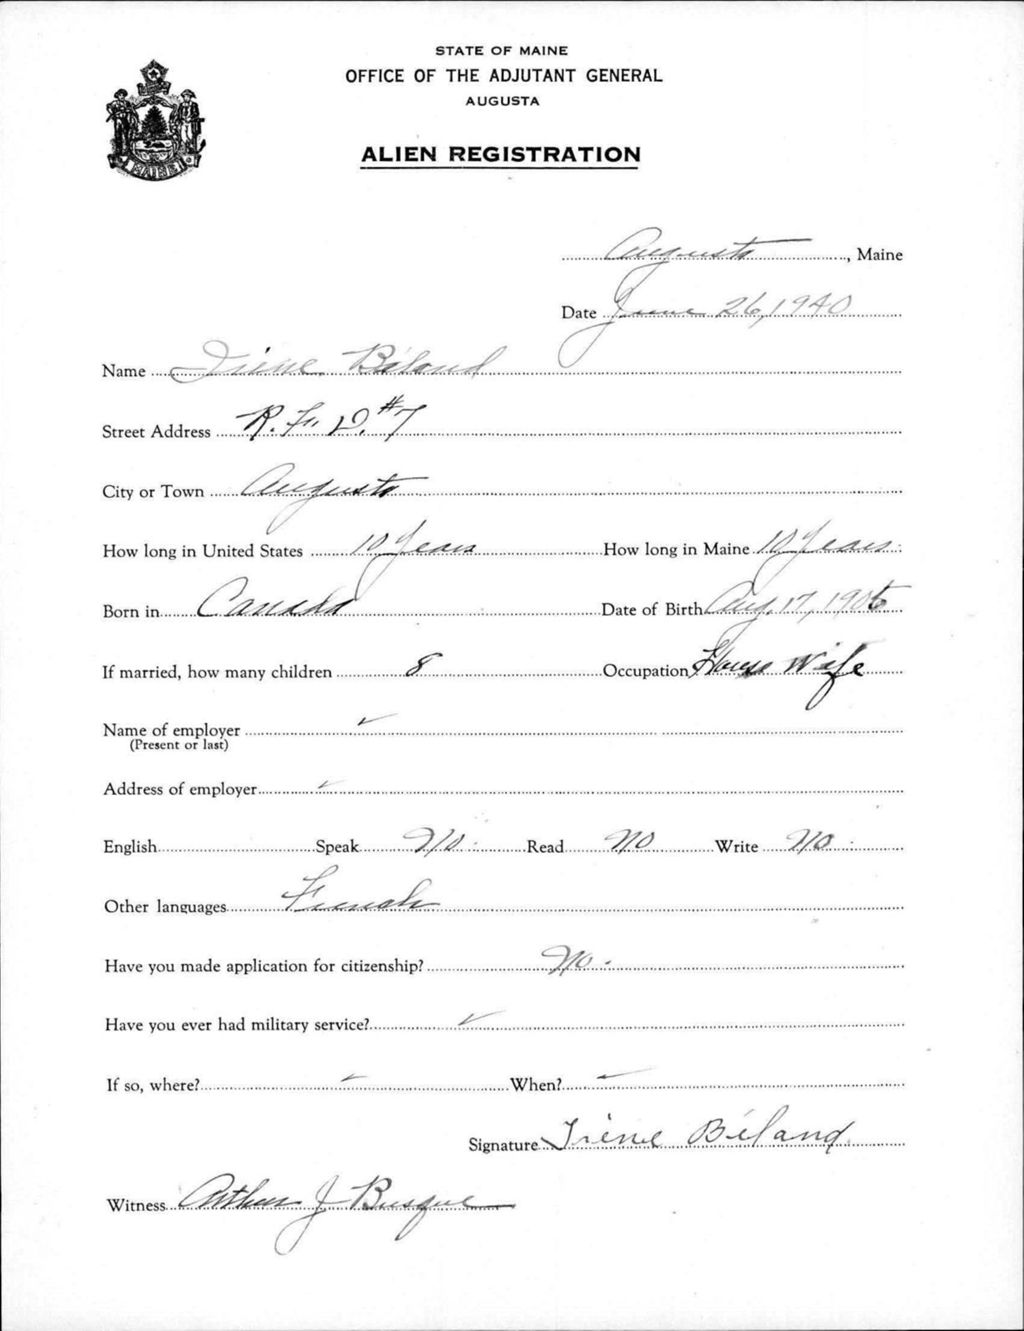 STATE OF MAINE
OFFICE OF THE ADJUTANT GENERAL
AUGUSTA
ALIEN REGISTRATION
Augusta, Maine
Date June 26, 1940
Name Irène Béland
Street Address R. F. D. #7
City or Town Augusta
How long in United States 10 Years How long in Maine 10 Years
Born in Canada Date of Birth Aug. 17, 1905
If married, how many children 8 Occupation House Wife
Name of employer ✓
(Present or last)
Address of employer ✓
English Speak No. Read No Write No.
Other languages French
Have you made application for citizenship? No.
Have you ever had military service? ✓
If so, where? ✓ When? ✓
Signature Irène Béland
Witness Arthur J Busque
MAINE